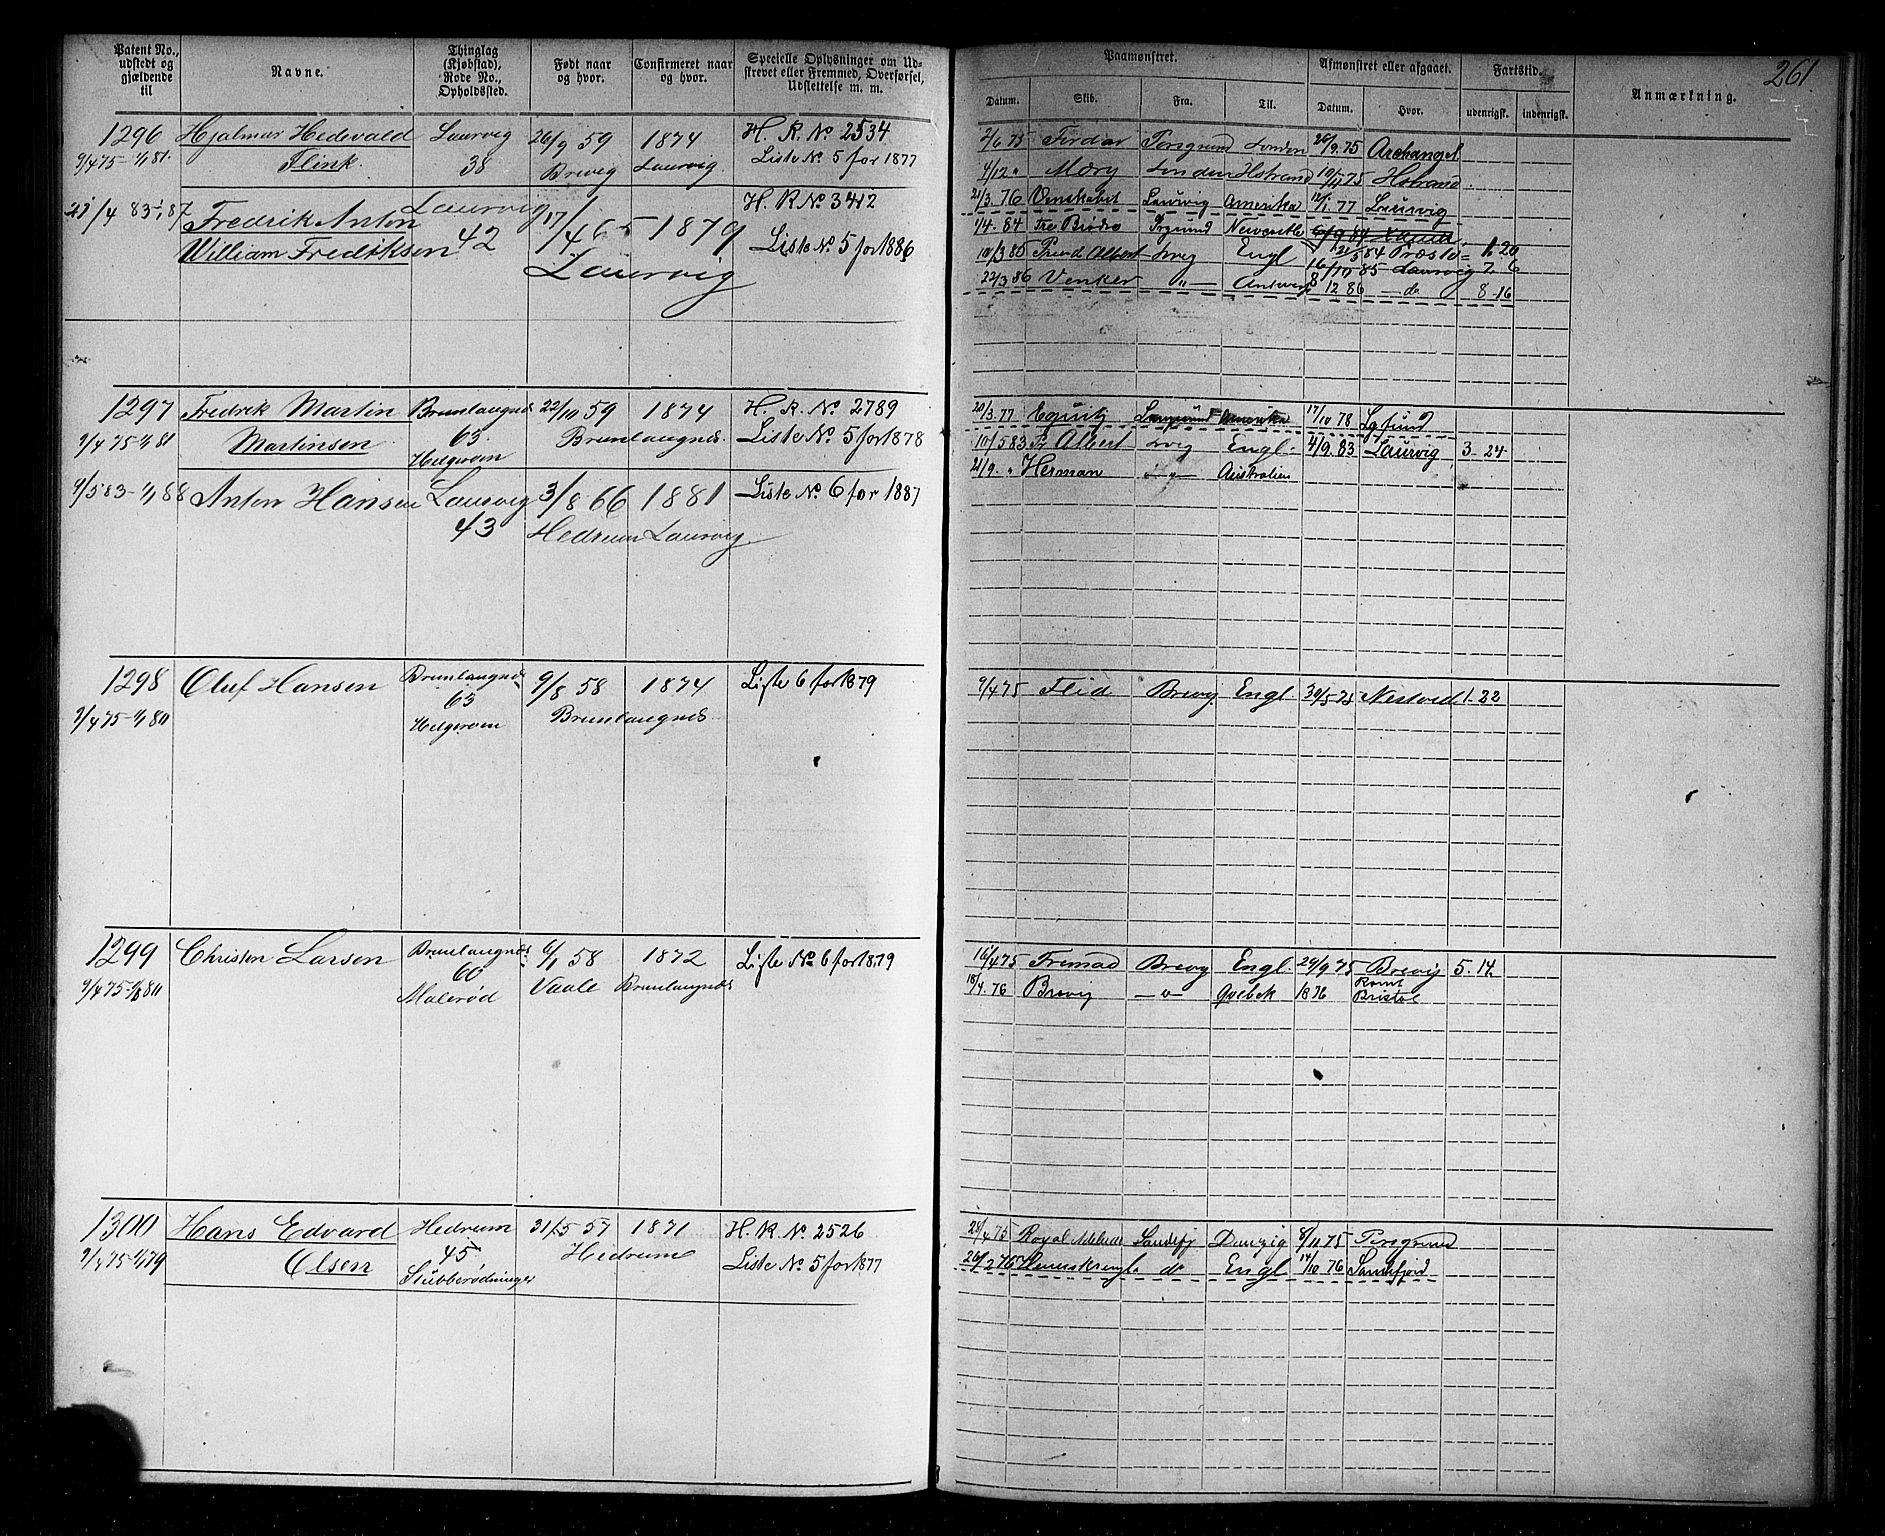 Patent No., udstedt og gjældende til
Navne.
Thinglag (Kjøbstad), Rode No., Opholdssted.
Født naar og hvor.
Confirmeret naar og hvor.
Specielle Oplysninger om Udskrevet eller Fremmed, Overførsel, Udslettelse m. m.
1296 Hjalmar Hedevald Laurvig 26/9 59 1874 H. R. No 2534
9/4 75 - 1/1 81. Flink. 38 Brevig Laurvig Liste No 5 for 1877
21/4 83 - 1/1 87 Fredrik Anton Laurvig 17/4 65 1879 H. R No 3412
William Fredriksen 42 Laurvig Liste No 5 for 1886
1297 Fredrik Martin Brunlaugnes 22/10 59 1874 H. R. No 2789
9/4 75 - 1/1 81 Martinsen 63. Brunlaugnes. Liste No 5 for 1878
Helgeroen
9/5 83 - 1/1 88 Anton Hansen Laurvig 3/8 66 1881 Liste No 6 for 1887
43 Hedrum Laurvig
1298 Oluf Hansen Brunlaugnes 9/8 58 1874 Liste 6 for 1879
9/4 75 - 1/1 80 63 Brunlaugnes
Helgeroen
1299 Christen Larsen Brunlaugnes 6/1 58 1872 Liste No 6 for 1879
9/4 75 - 1/1 80 60 Vaale Brunlaugnes
Malerød
1300 Hans Edvard Hedrum 31/5 57 1871 H. R. No 2526
9/4 75 - 1/1 79 Olsen 45 Hedrum Liste No 5 for 1877
Stubberødninger
261.
Paamønstret.
Afmønstret eller afgaaet.
Fartstid.
Anmærkning.
Datum. Skib. Fra. Til. Datum. Hvor. udenrigsk. indenrigsk.
2/6 75 Porsgrund London 26/9. 75 Archangel
4/12 " Mary London Holmstrand 75
21/3. 76 Venskabet Laurvig Amerika 12/1 77 Laurvig
84 Tre Brødre Newcastle
10/3 85 Albert Lvig Engl 16/10 85 Laurvig 7. 6
22/3 86 Venker " 8 12 86 do 8 - 16
20/3. 77 Equity Amerika 17/10 78
10/5 83 Pr Albert Lvig Engl. 4/9. 83 Laurvig 3 - 24
21/9. " Herman Australien
9/4 75 Flid Brevg. Engl. 30/5 75 Nestved 1. 22
16/4 75 Brevg Engl. 29/9 75 Brevig 5. 14
18/4. 76 Brevig Qvebek 1876 Rømt Bristol
23/4 75 Royal Adelaide Sandefj Danzig 8/11. 75 Porsgrund
26/2 76 do Engl 17/10 76 Sandefjord